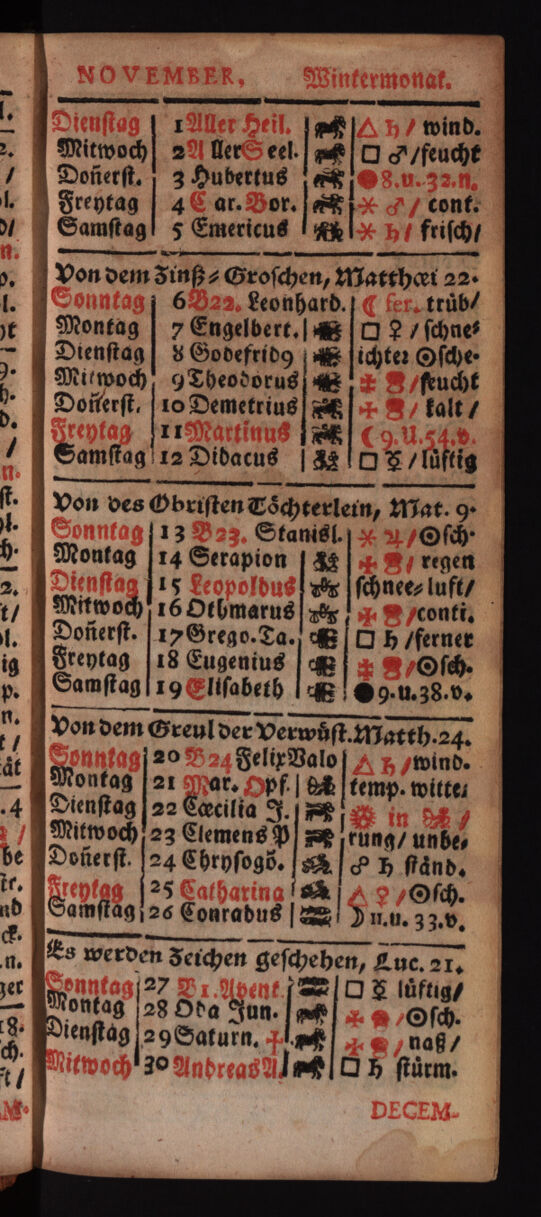 NOVEMBER. Wintermonat.
Dienstag 1 Aller Heil. △ ♄ / wind.
Mitwoch 2 AllerSeel. □ ♂ /feucht
Don̄erst. 3 Hubertus 8.u.32.n.
Freytag 4 Car. Bor. ⚹ ♂ / cont.
Samstag 5 Emericus ⚹ ♄ / frisch/
Von dem Zinß⸗Groschen, Matthæi 22.
Sonntag 6 B22. Leonhard. ☾ fer. trüb/
Montag 7 Engelbert. □ ♀ / schne⸗
Dienstag 8 Godefrid9 ichter ☉sche.
Mitwoch 9 Theodorus /feucht
Don̄erst. 10 Demetrius / kalt /
Freytag 11 Martinus ☾ 9.U.54.v.
Samstag 12 Didacus □ ☿ / lüftig
Von des Obristen Töchterlein, Mat. 9.
Sonntag 13 B23. Stanisl. ⚹ ♃ / ☉sch.
Montag 14 Serapion / regen
Dienstag 15 Leopoldus schnee⸗luft/
Mitwoch 16 Othmarus /conti.
Don̄erst. 17 Grego. Ta. □ ♄ /ferner
Freytag 18 Eugenius / ☉sch.
Samstag 19 Elisabeth ● 9.u.38.v.
Von dem Greul der Verwüst. Matth. 24.
Sonntag 20 B24 Felix Valo △ ♄ / wind.
Montag 21 Mar. Opf. temp. witte⸗
Dienstag 22 Cæcilia J. in /
Mitwoch 23 Clemens P rung/ unbe⸗
Don̄erst. 24 Chrysogō. ☍ ♄ ständ.
Freytag 25 Catharina △ ♀ / ☉sch.
Samstag 26 Conradus ☽ 11.u.33.v.
Es werden Zeichen geschehen, Luc. 21.
Sonntag 27 B1. Advent. □ ☿ lüftig/
Montag 28 Oda Jun. / ☉sch.
Dienstag 29 Saturn. / naß /
Mitwoch 30 Andreas A. □ ♄ stürm.
DECEM-